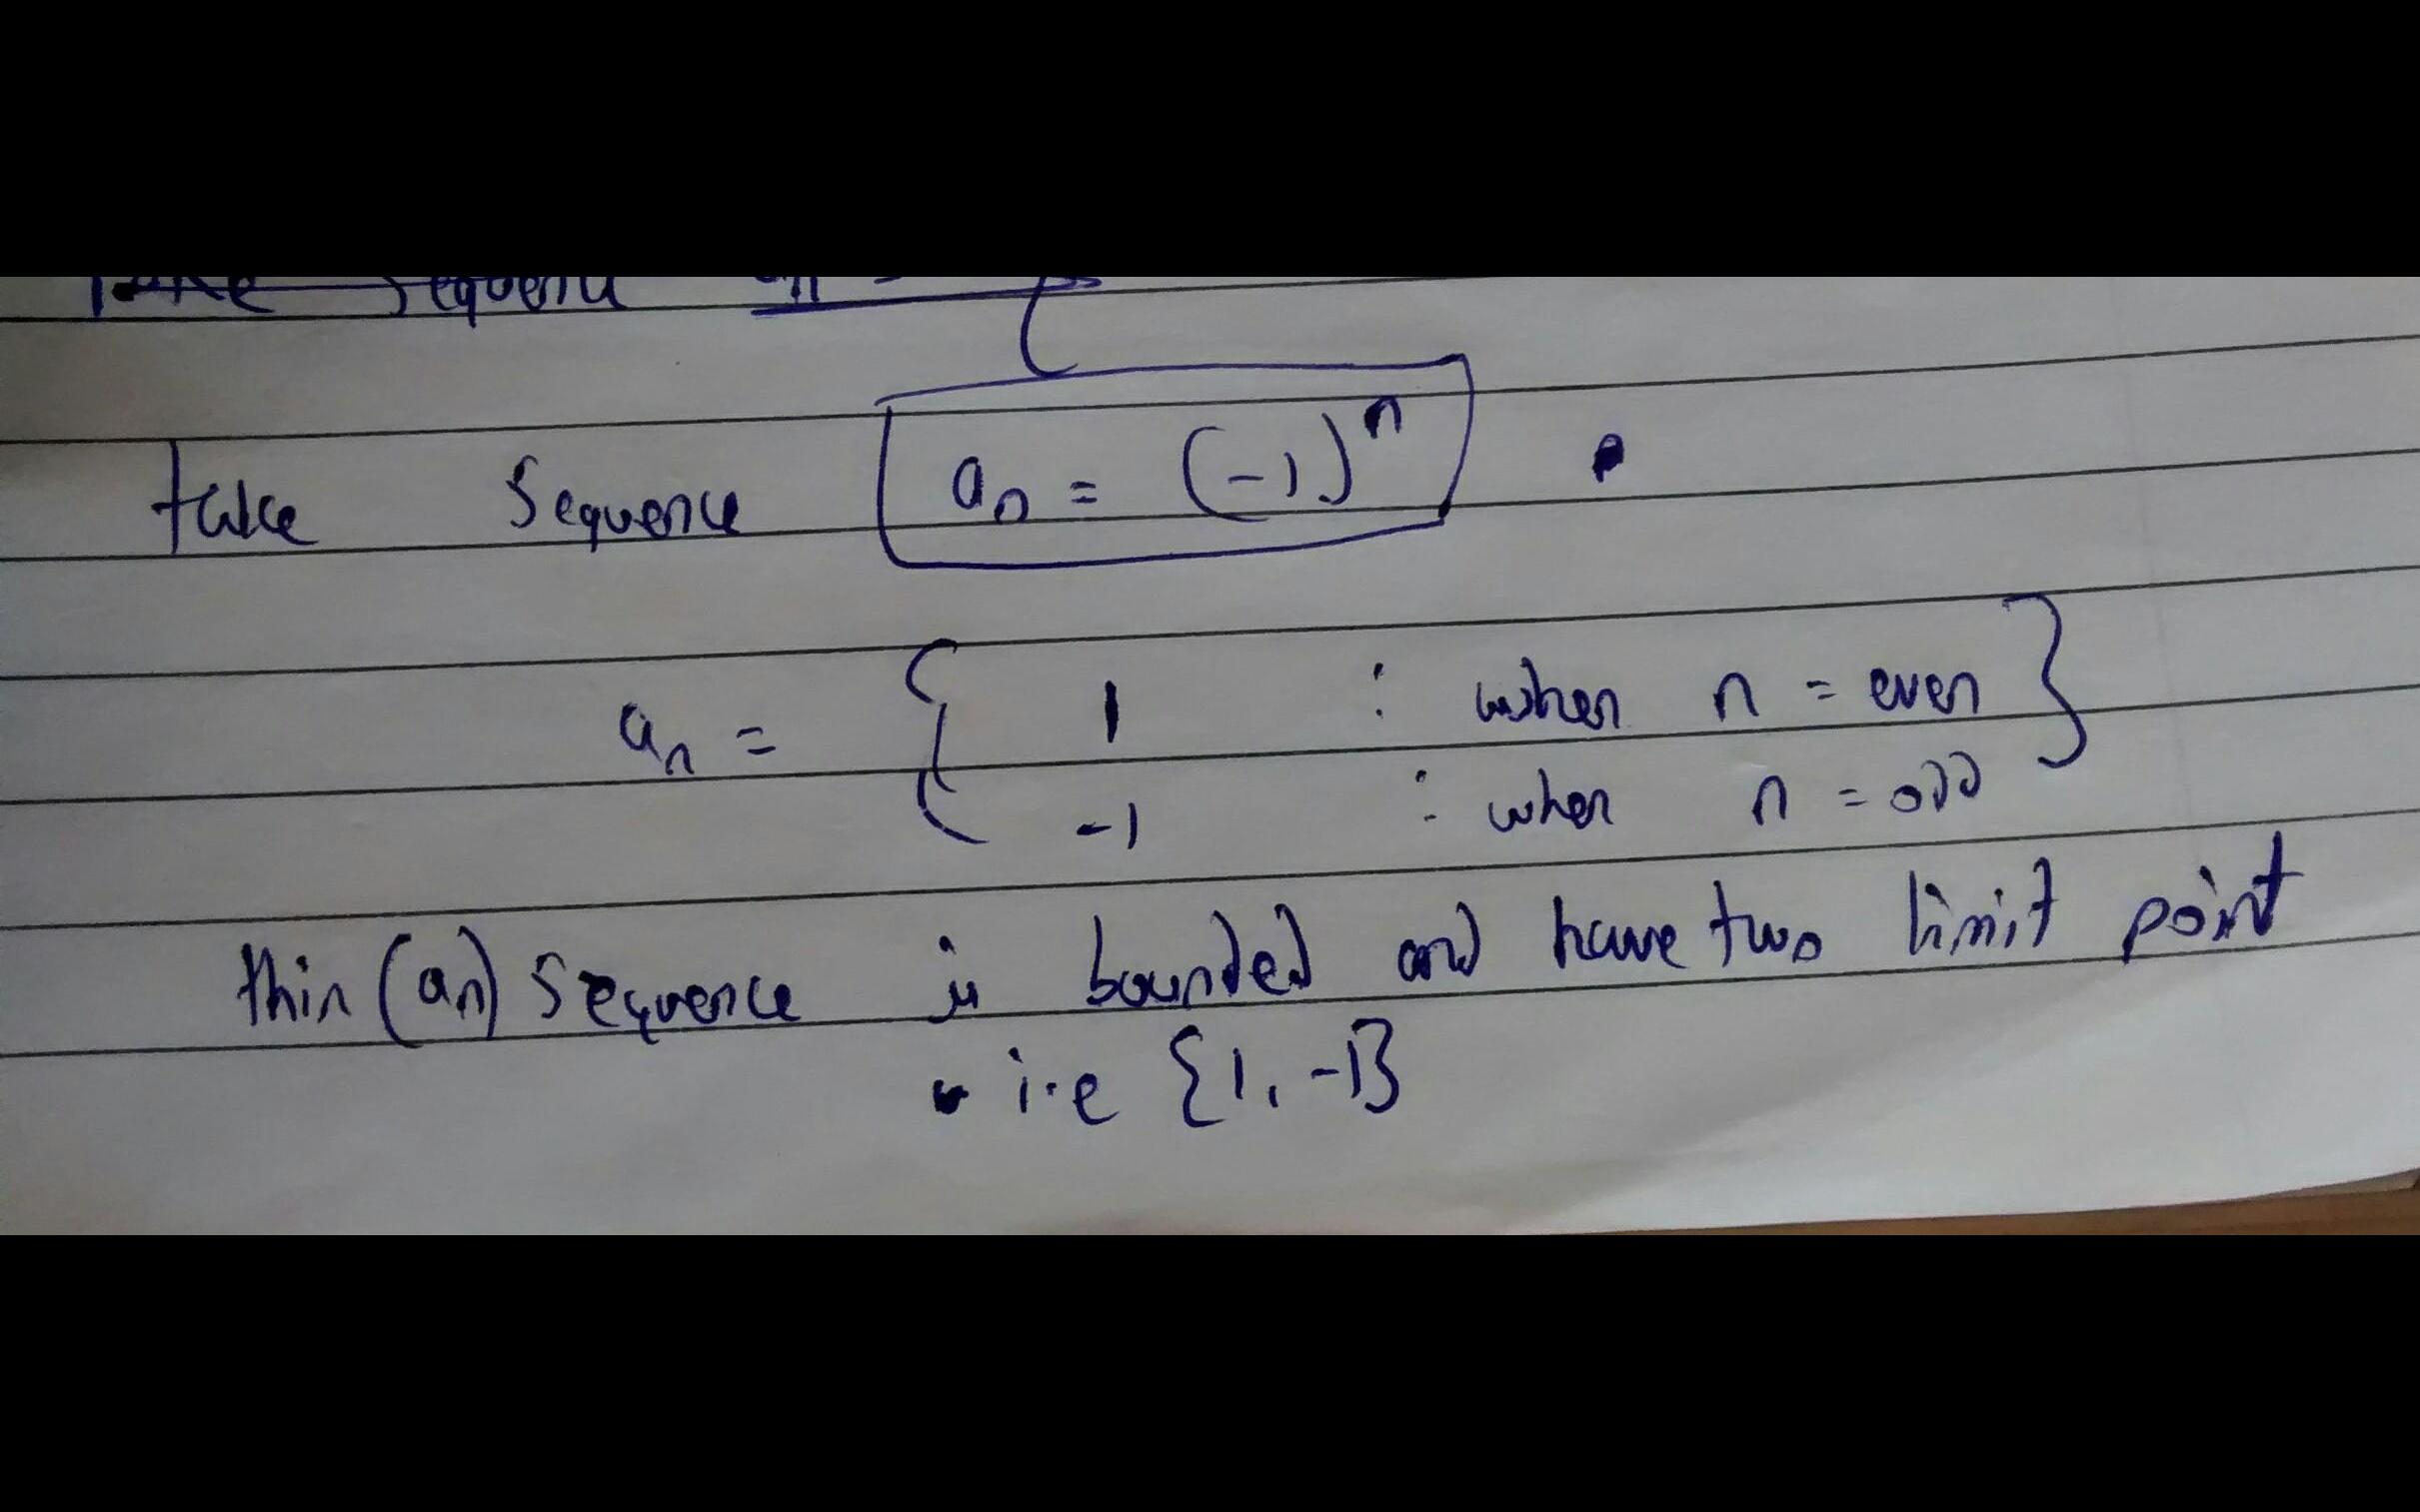 Take Sequence an =
take Sequence an = (-1)^n
an = { 1 : when n = even }
-1 : when n = odd
this (an) sequence is bounded and have two limit point
i.e {1, -1}